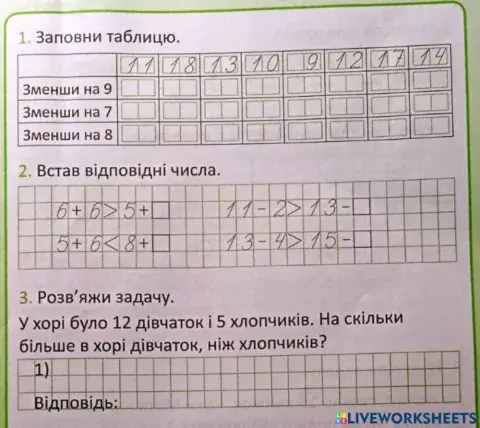 1. Заповни таблицю.
11 18 13 10 9 12 17 14
Зменши на 9
Зменши на 7
Зменши на 8
2. Встав відповідні числа.
6+6>5+□ 11-2>13-□
5+6<8+□ 13-4>15-□
3. Розв’яжи задачу.
У хорі було 12 дівчаток і 5 хлопчиків. На скільки
більше в хорі дівчаток, ніж хлопчиків?
1)
Відповідь:
LIVEWORKSHEETS